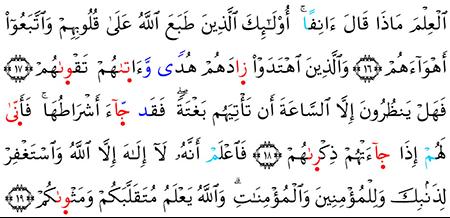 ٱلۡعِلۡمَ مَاذَا قَالَ ءَانِفًاۚ أُوْلَٰٓئِكَ ٱلَّذِينَ طَبَعَ ٱللَّهُ عَلَىٰ قُلُوبِهِمۡ وَٱتَّبَعُوٓاْ
أَهۡوَآءَهُمۡ ﴿١٦﴾ وَٱلَّذِينَ ٱهۡتَدَوۡاْ زَادَهُمۡ هُدٗى وَءَاتَىٰهُمۡ تَقۡوَىٰهُمۡ ﴿١٧﴾
فَهَلۡ يَنظُرُونَ إِلَّا ٱلسَّاعَةَ أَن تَأۡتِيَهُم بَغۡتَةٗۖ فَقَدۡ جَآءَ أَشۡرَاطُهَاۚ فَأَنَّىٰ
لَهُمۡ إِذَا جَآءَتۡهُمۡ ذِكۡرَىٰهُمۡ ﴿١٨﴾ فَٱعۡلَمۡ أَنَّهُۥ لَآ إِلَٰهَ إِلَّا ٱللَّهُ وَٱسۡتَغۡفِرۡ
لِذَنۢبِكَ وَلِلۡمُؤۡمِنِينَ وَٱلۡمُؤۡمِنَٰتِۗ وَٱللَّهُ يَعۡلَمُ مُتَقَلَّبَكُمۡ وَمَثۡوَىٰكُمۡ ﴿١٩﴾